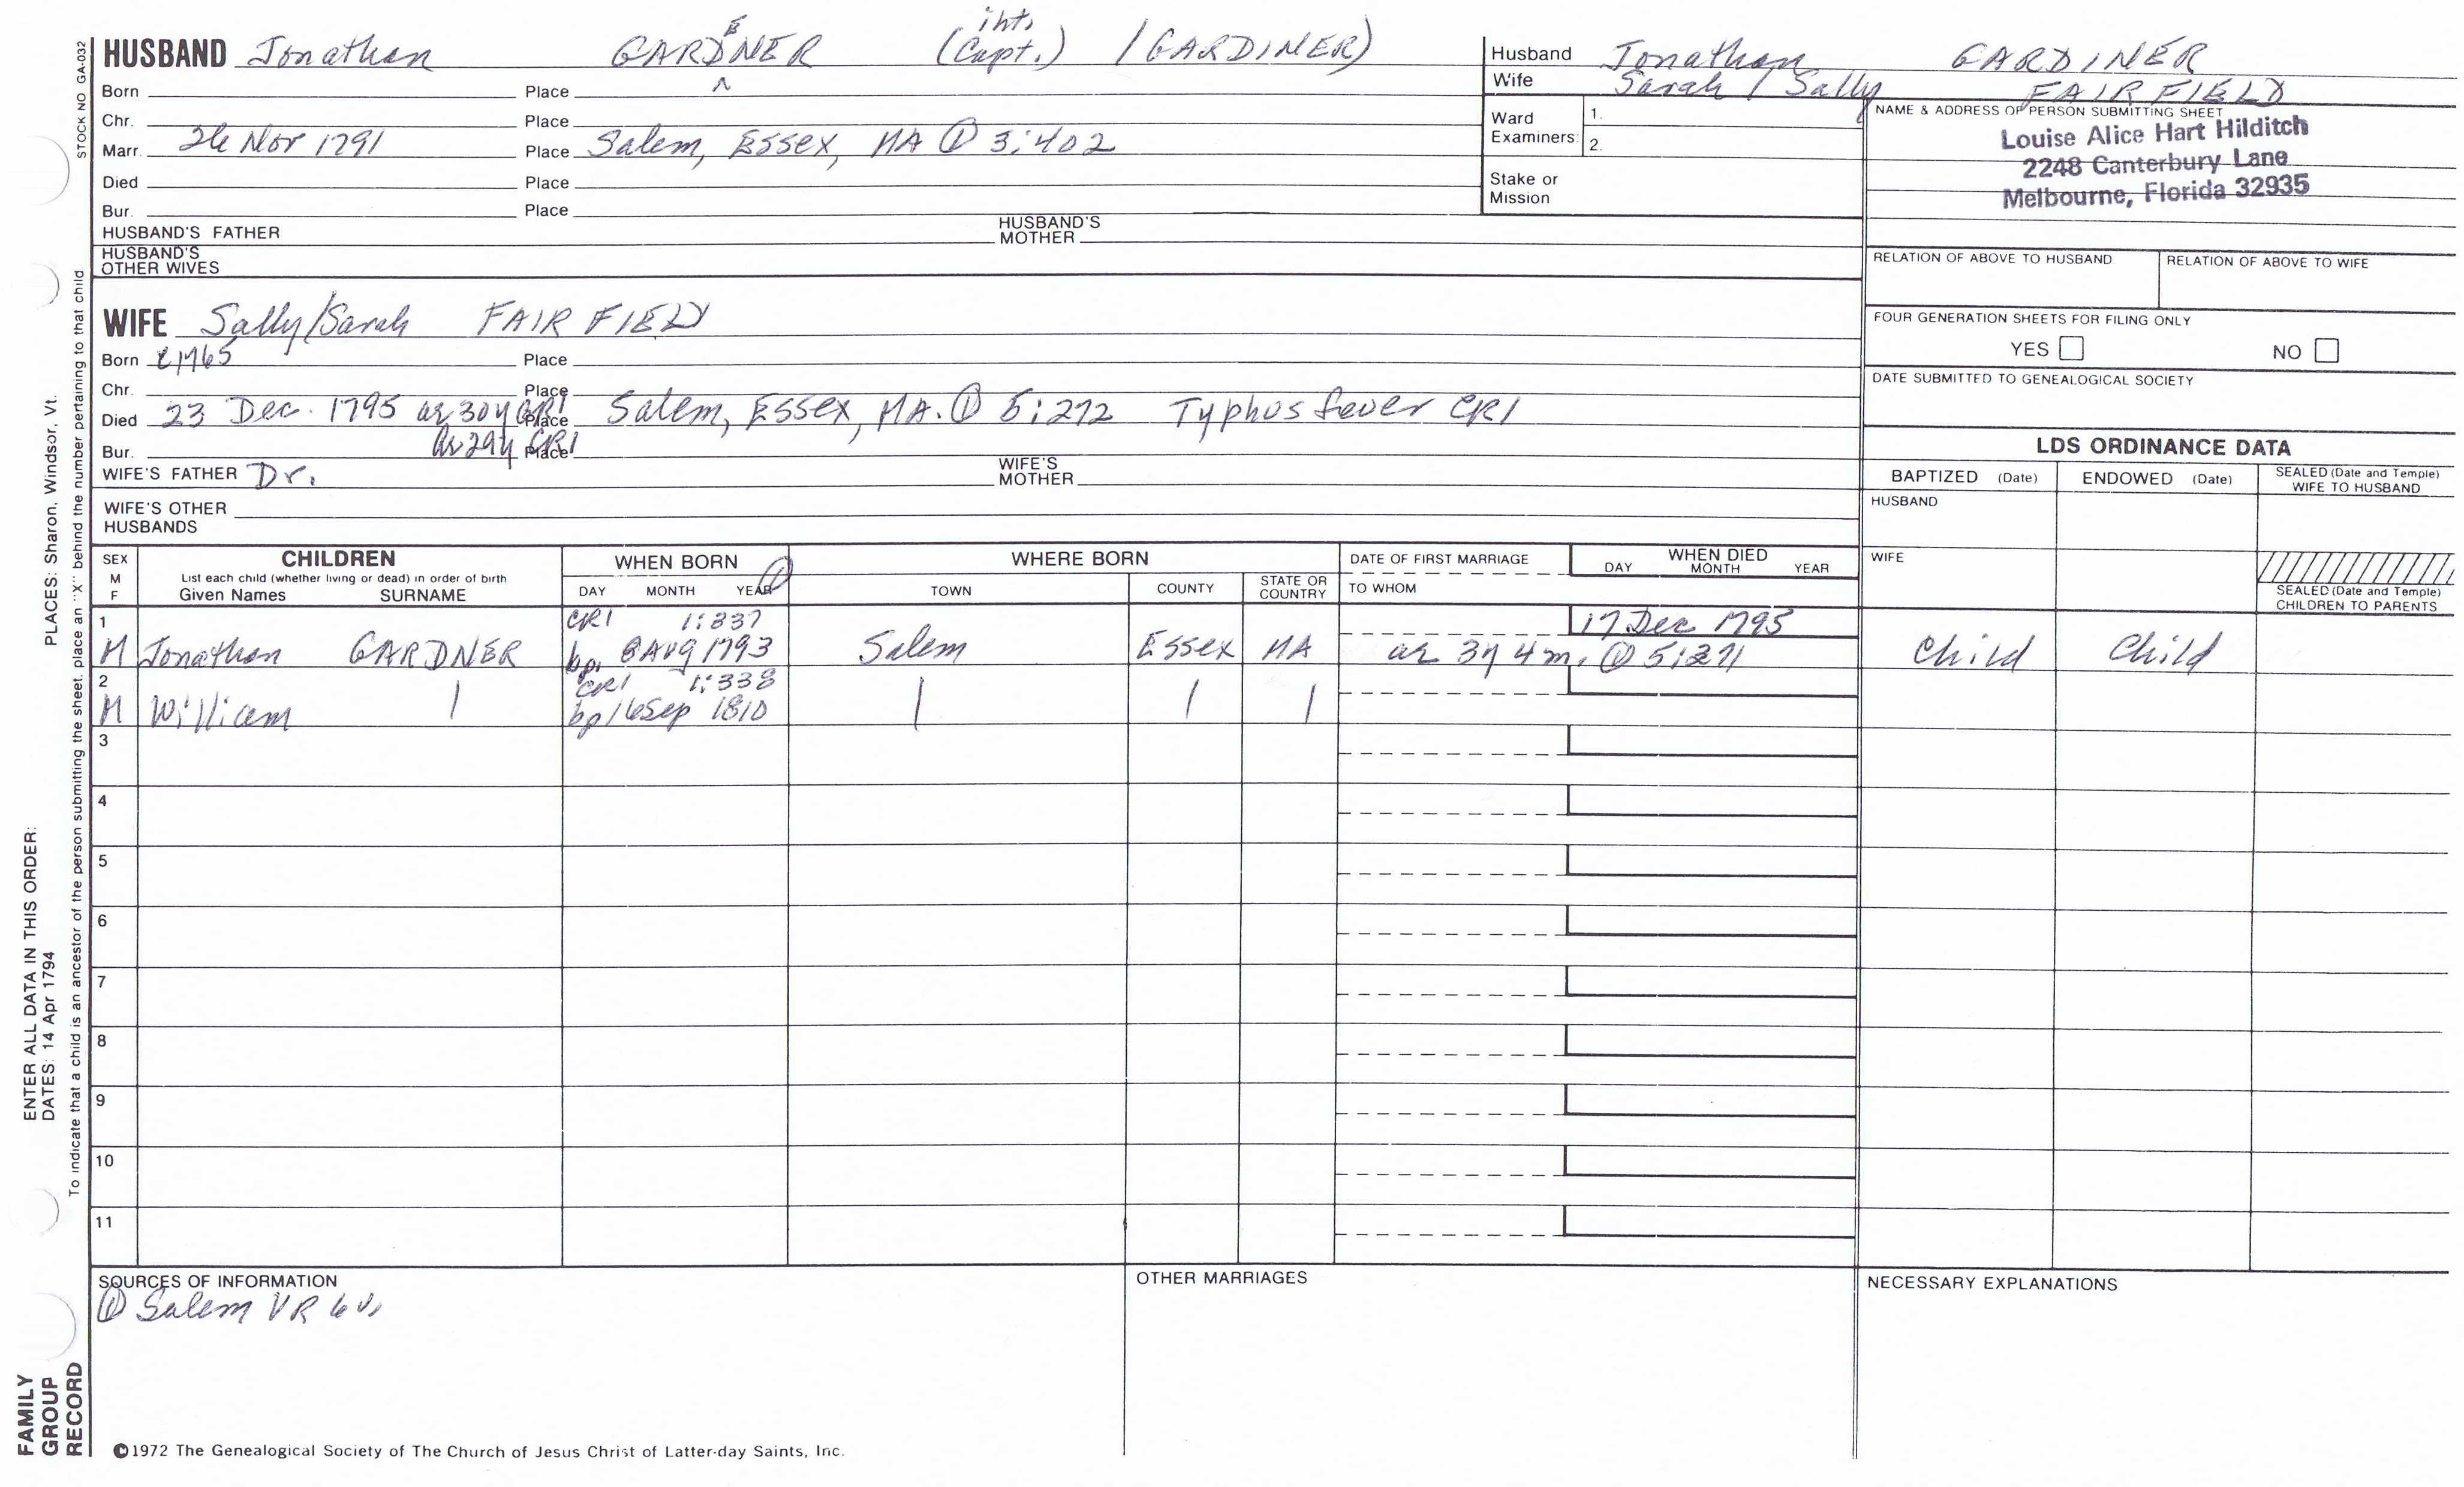 STOCK NO GA-032
HUSBAND Jonathan GARDNER (Capt.) / GARDINER)
E
int.
Born Place
Chr. Place
Marr. 26 Nov 1791 Place Salem, Essex, MA ① 3:402
Died Place
Bur. Place
HUSBAND'S FATHER HUSBAND'S MOTHER
HUSBAND'S OTHER WIVES
Husband Jonathan GARDINER
Wife Sarah / Sally FAIRFIELD
Ward Examiners: 1.
2.
Stake or Mission
NAME & ADDRESS OF PERSON SUBMITTING SHEET
Louise Alice Hart Hilditch
2248 Canterbury Lane
Melbourne, Florida 32935
RELATION OF ABOVE TO HUSBAND RELATION OF ABOVE TO WIFE
FOUR GENERATION SHEETS FOR FILING ONLY
YES NO
DATE SUBMITTED TO GENEALOGICAL SOCIETY
WIFE Sally/Sarah FAIRFIELD
Born c1765 Place
Chr. Place
Died 23 Dec. 1795 ae 30y CR1 Place Salem, Essex, MA. ① 5:272 Typhus fever CR1
ae 29y CR1
Bur. Place
WIFE'S FATHER Dr. WIFE'S MOTHER
WIFE'S OTHER HUSBANDS
LDS ORDINANCE DATA
BAPTIZED (Date) ENDOWED (Date) SEALED (Date and Temple) WIFE TO HUSBAND
HUSBAND
WIFE
SEALED (Date and Temple) CHILDREN TO PARENTS
SEX M F
CHILDREN
List each child (whether living or dead) in order of birth
Given Names SURNAME
WHEN BORN ①
DAY MONTH YEAR
WHERE BORN
TOWN COUNTY STATE OR COUNTRY
DATE OF FIRST MARRIAGE
TO WHOM
WHEN DIED
DAY MONTH YEAR
1 CR1 1:337 17 Dec 1795
M Jonathan GARDNER bp. 8 Aug 1793 Salem Essex MA ae 3y 4m. ① 5:271 Child Child
2 CR1 1:338
M William | bp 16 Sep 1810 | | |
3
4
5
6
7
8
9
10
11
SOURCES OF INFORMATION
① Salem VR 6 v.
OTHER MARRIAGES
NECESSARY EXPLANATIONS
©1972 The Genealogical Society of The Church of Jesus Christ of Latter-day Saints, Inc.
FAMILY GROUP RECORD
ENTER ALL DATA IN THIS ORDER:
DATES: 14 Apr 1794 PLACES: Sharon, Windsor, Vt.
To indicate that a child is an ancestor of the person submitting the sheet, place an "X" behind the number pertaining to that child